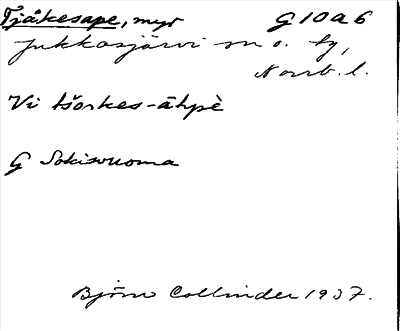 Tjåkesape, myr G 10 a 6
Jukkasjärvi sn o. ty,
Norrb. l.
Vi tšorkes-āhpè
G Sokisvuoma
Björn Collinder 1937.